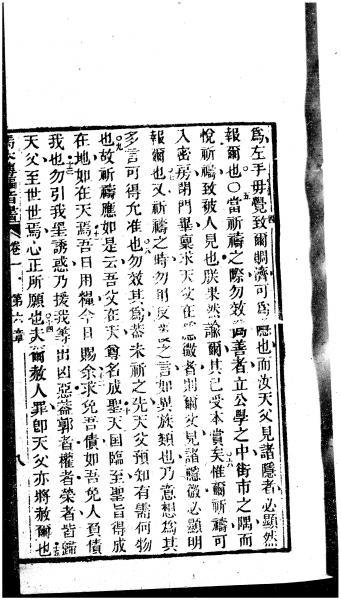 為左手毋覺致爾賙濟可為隱也而汝天父見諸隱者必顯然
報爾也〇當祈禱之際勿效偽善者立公學之中街市之隅而
悅祈禱致被人見也朕果然諭爾其已受本賞矣惟爾祈禱可
入密房閉門畢稟求天父在隱微者則爾父見諸隱微必顯明
報爾也又祈禱之時勿用反覆之言如異族類也乃意想為其
多言可得允准也勿效其為蓋未祈之先天父預知有需何物
也故祈禱應如是云吾父在天尊名成聖天国臨至聖旨得成
在地如在天焉吾日用糧今日賜余求免吾債如吾免人負債
我也勿引我等誘惑乃援我等出凶惡蓋郭者權者榮者皆歸
天父至世世焉心正所願也夫爾赦人罪即天父亦將赦爾也
卷一 第六章 八